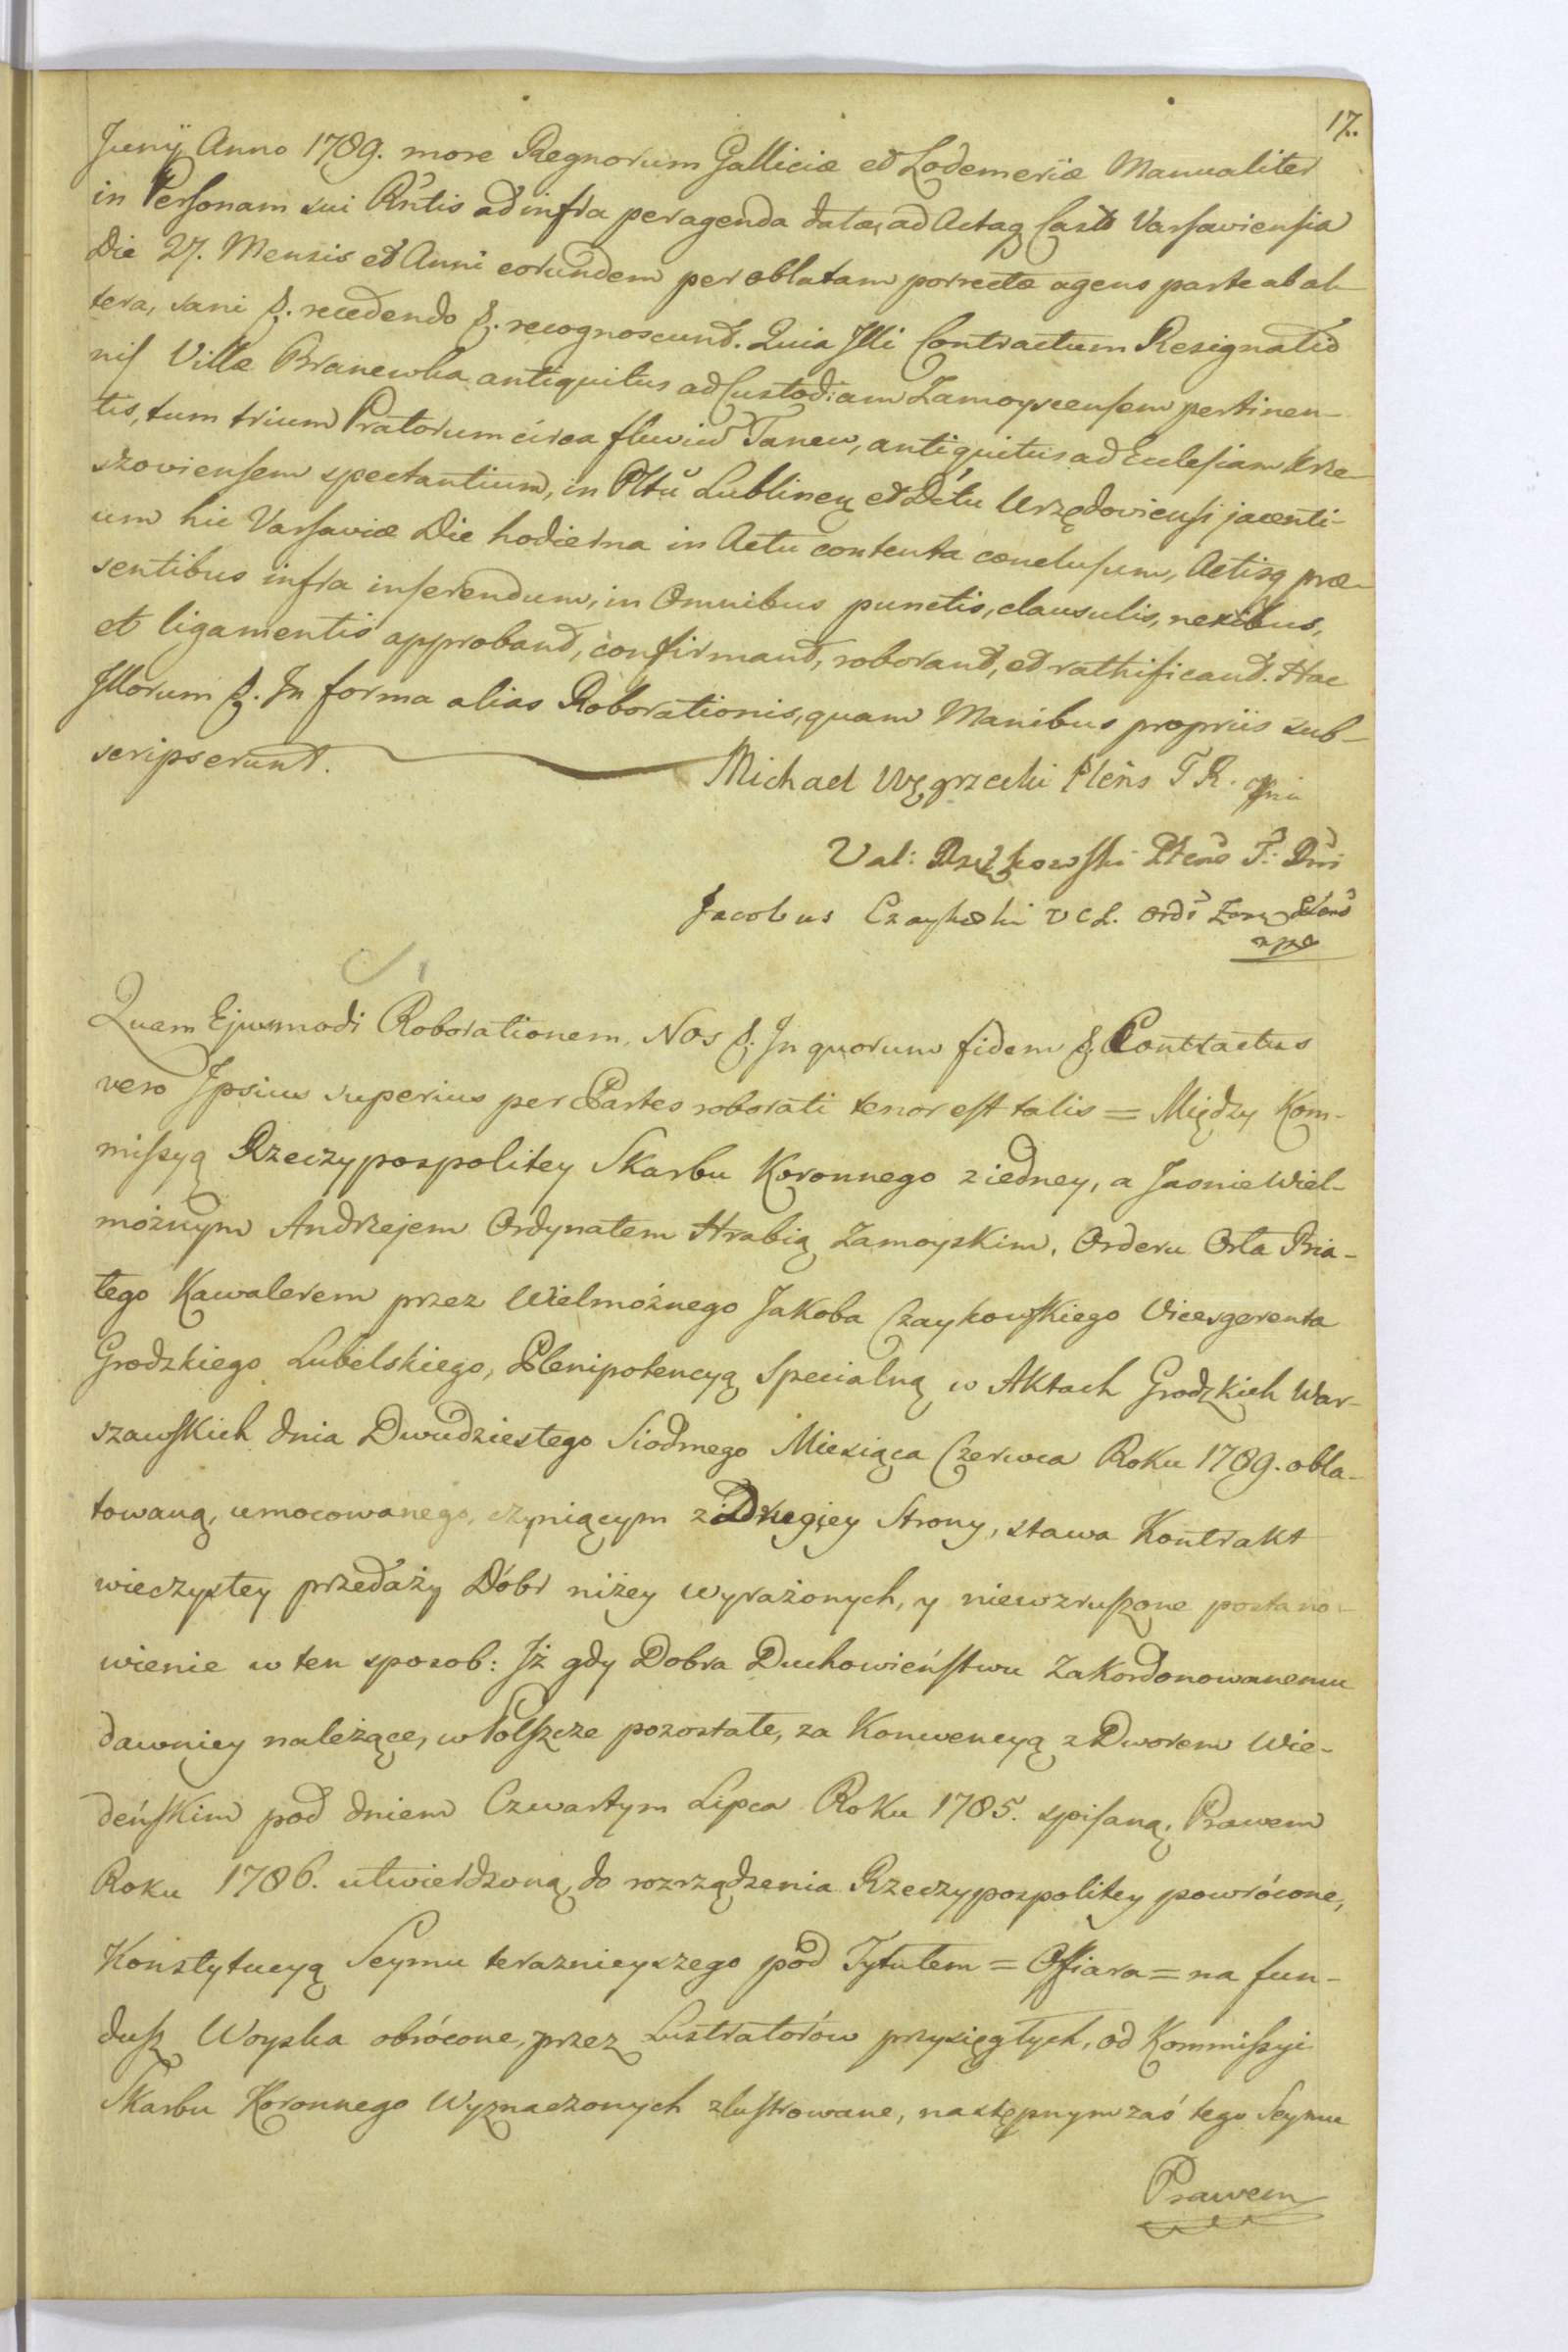 17.
Junÿ Anno 1789. more Regnorum Galliciæ et Lodomeriæ Manualiter
in Personam sui Rñtis ad infra peragenda datæ, ad Actaq Cast Varsaviensia
Die 27. Mensis et Anni eorundem per oblatam porrectæ agens parte ab al-
tera, sani recedendo recognoscunt. Quia Illi Contractum Resignatio
nis Villæ Branewka antiquitus ad Custodiam Zamoyscensem pertinen-
tis, tum trium Pratorum circa fluviũ Tanew, antiquitus ad Ecclesiam Krze-
szoviensem spectantium, in Pltũ Lublinen et Dctu Urzędoviensi jacenti-
um hic Varsaviæ Die hodierna in Actu contenta conclusum, Actisq præ-
sentibus infra inserendum, in Omnibus punctis, clausulis, nexibus,
et ligamentis approband, confirmand, roborand, et rathificand. Hac
Illorum In forma alias Roborationis, quam Manibus propriis sub-
scripserunt.
Michael Węgrzecki Pleñs T R.
Val: Pleñs T:
Jacobus Czaykowski V C L. Ord Zam Pleñs
mpp
Quam Ejusmodi Roborationem, Nos In quorum fidem Contractus
vero Ipsius superius per Partes roborati tenor est talis = Między Kom-
missyą Rzeczypospolitey Skarbu Koronnego z iedney, a Jasnie Wiel-
możnym Andrzejem Ordynatem Hrabią Zamoyskim, Orderu Orła Bia-
łego Kawalerem przez Wielmożnego Jakoba Czaykowskiego Vicesgerenta
Grodzkiego Lubelskiego, Plenipotencyą Specialną w Aktach Grodzkich War-
szawskich dnia Dwudziestego Siodmego Miesiąca Czerwca Roku 1789. obla-
towaną, umocowanego, czyniącym z Drugięy Strony, stawa Kontrakt
wieczystey przedaży Dóbr niżey wyrażonych, y niewzruszone postano-
wienie w ten sposob: Jż gdy Dobra Duchowieństwu Zakordonowanemu
dawniey należące, w Polszcze pozostałe, za Konwencyą z Dworem Wie-
deńskim pod dniem Czwartym Lipca Roku 1785. spisaną, Prawem
Roku 1786. utwierdzoną, do rozrządzenia Rzeczypospolitey powrócone,
Konstytucyą Seymu teraznieyszego pod Tytułem = Offiara = na fun-
dusz Woyska obrócone, przez Lustratorów przysięgłych, od Kommissyi
Skarbu Koronnego Wyznaczonych zlustrowane, następnym zaś tego Seymu
Prawem